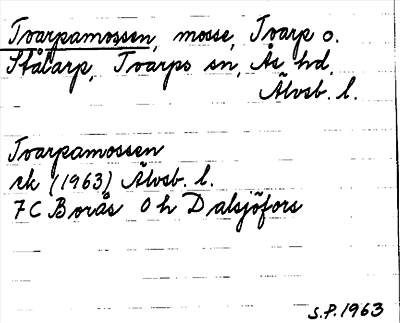 Tvarpamossen, mosse, Tvarp o.
Stålarp, Tvärps sn, Ås hd,
Älvsb. l.
Tvarpamossen
rk (1963) Älvsb. l.
7C Borås 0h Dalsjöfors
S.P. 1963